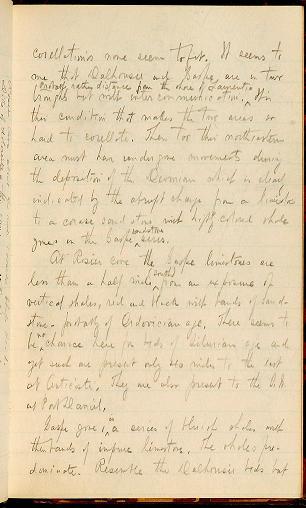 corellations none seem to fit. It seems to
me that Dalhousie and Gaspe, are in two
probably rather distance from the shore of
troughs but with inter communication. It is
this condition that makes the two areas so
hard to corellate. Then too this northeastern
area must have undergone movements during
the deposition of the Devonian which is clearly
indicated by the abrupt change from a limestone
to a coarse sandstone with light colored shale
zones in the Gaspe sandstone series.
At Rosier cove the Gaspe limestones are
less than a half mile south from an exposure of
vertical shales, red and black with bands of sand-
stone - probably of Ordovician age. There seems to
be no chance here for beds of Silurian age and
yet such are present only miles to the east
at Anticosti. They are also present to the S.W.
at Port Daniel.
Gaspe gives in a series of bluish shales with
thin bands of impure limestone. The shales pre-
dominate. Resemble the Dalhousie beds but